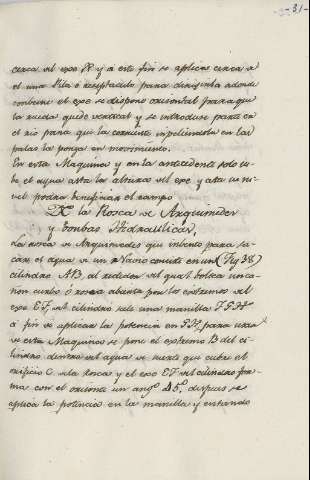 - 31 -
cerca del exe R y á este fin se aplica cerca d
el una Pila ó receptaculo para dirigirla adonde
combine el exe se dispone orisontal para que
la rueda quede vertical y se introduse parte en
el rio para que la corriente inpeliendola en las
palas la ponga en movimiento.
En esta Maquina y en la antecedente solo su-
be el agua asta la altura del exe y asta su ni-
vel podra beneficiar el campo
De la Rosca de Arquimides
y bombas Hidraulicas.
La rosca de Arquimides que intento para sa-
car el agua de un Navio consiste en un (Fig 38)
cilindro AB, al rededor del qual bolea un ca-
ñon curbo ó rosca abierta por los extremos del
exe EF, del cilindro sale una manilla FGH
á fin de aplicar la potencia en GH, para usar
de esta Maquina se pone el extremo B del ci-
lindro dentro del agua de suerte que cubra el
orificio C de la rosca y el exe EF del cilindro for-
ma con el orisonte un angº 45º despues se
aplica la potencia en la manilla y estando